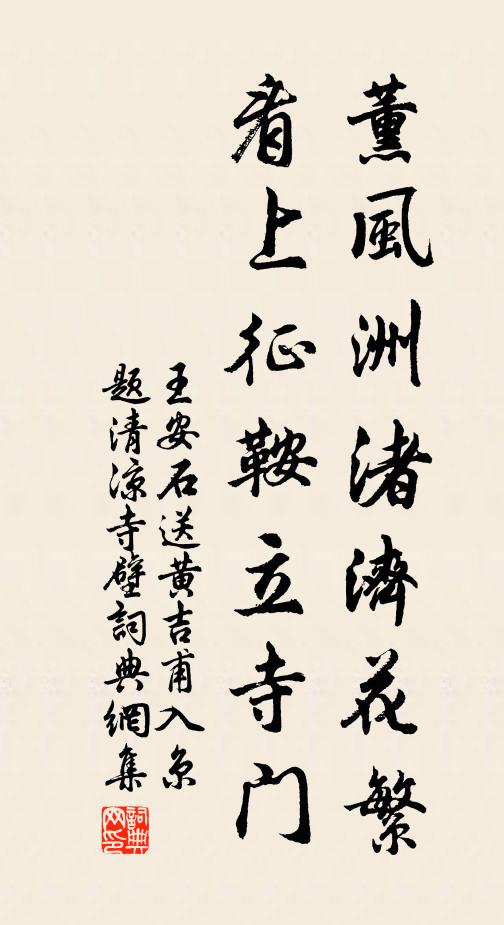 薰風洲渚濟花繁
看上征鞍立寺門
王安石送黄吉甫入京
题清凉寺壁詞典網集
詞典
网印